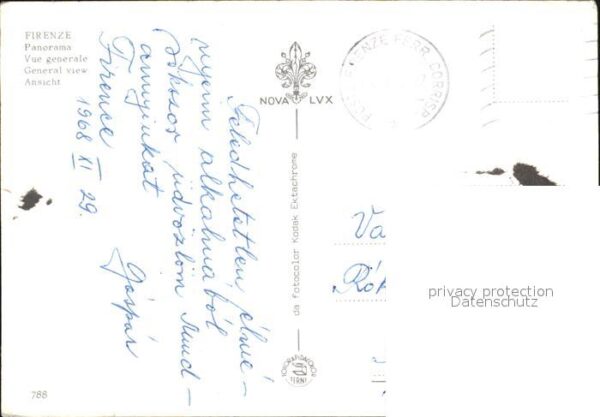 FIRENZE
Panorama
Vue generale
General view
Ansicht
Feledhetetlen élmé-
nyem alkalmából
sokszor üdvözlöm Mind-
annyiukat
Firence
1968 XI 29.
Gáspár
NOVA LVX
da fotocolor Kodak Ektachrome
FIRENZE FERR. CORRISP
TERNI
Va
Rók
privacy protection
Datenschutz
788